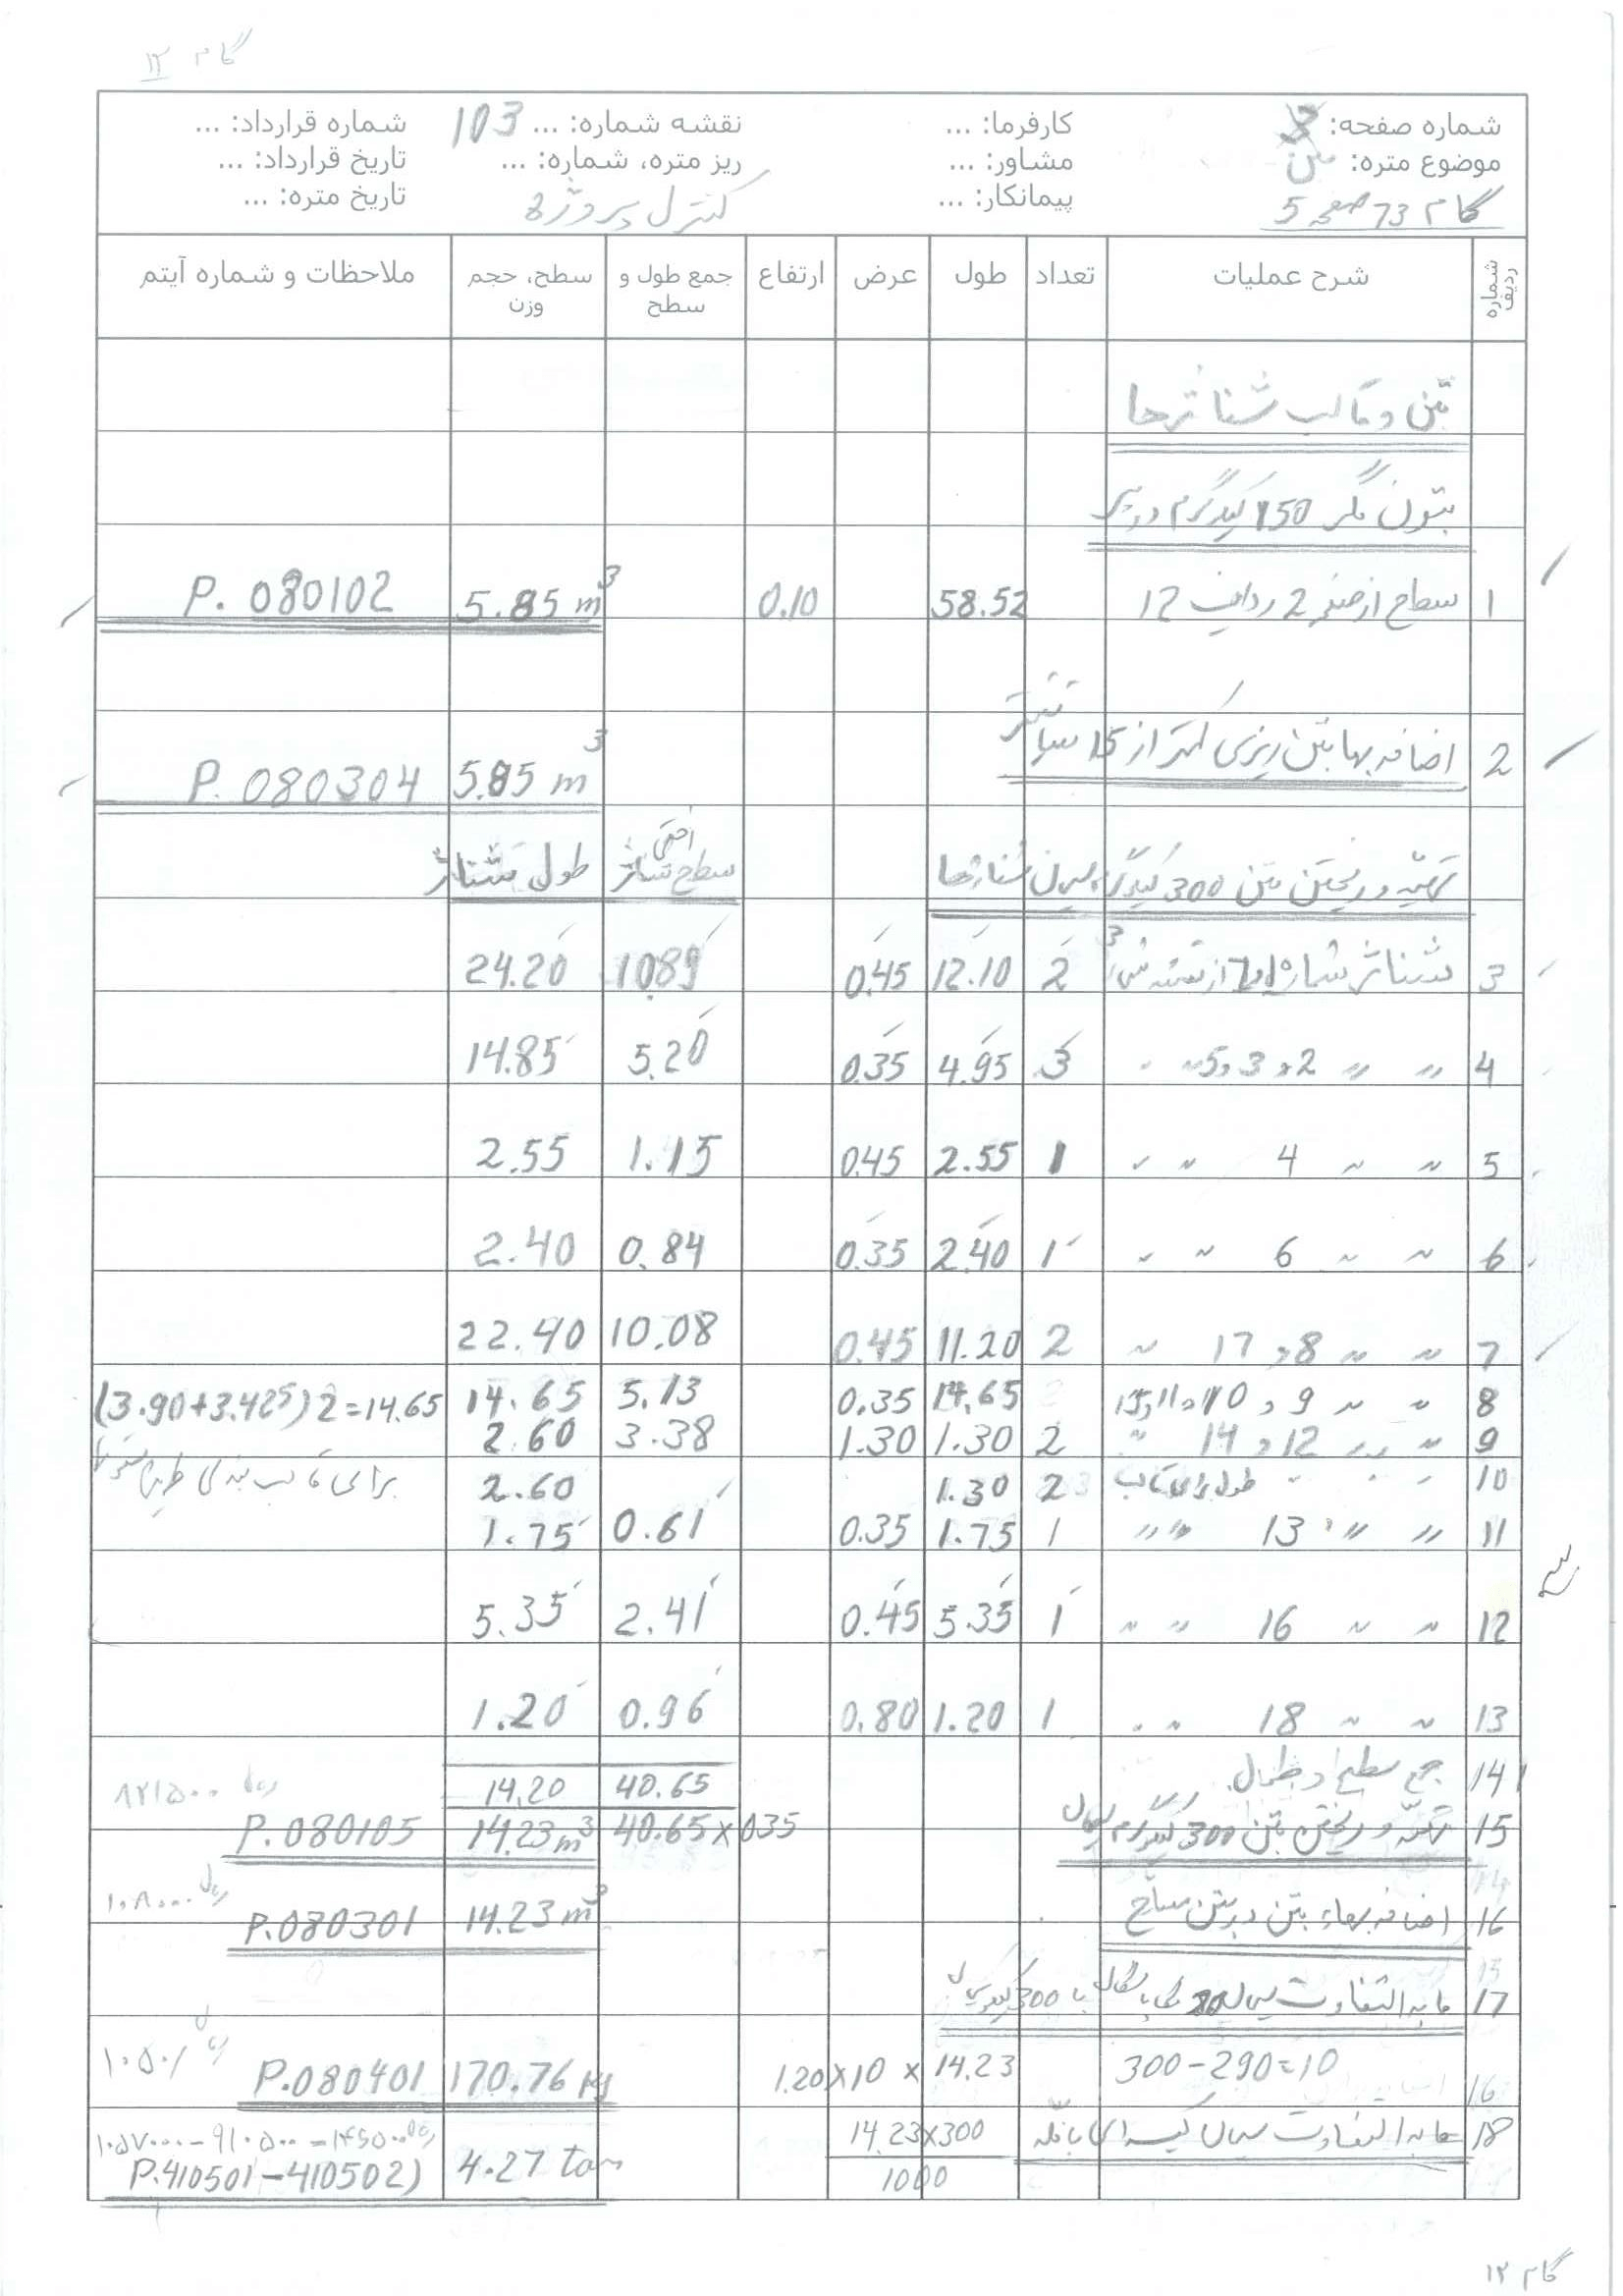 گام ۱۲
شماره صفحه:
موضوع متره: بتن
گام 73 صفحه 5
کارفرما: ...
مشاور: ...
پیمانکار: ...
نقشه شماره: ... 103
ریز متره، شماره: ...
کنترل پروژه
شماره قرارداد: ...
تاریخ قرارداد: ...
تاریخ متره: ...
شماره ردیف شرح عملیات تعداد طول عرض ارتفاع جمع طول و سطح سطح، حجم وزن ملاحظات و شماره آیتم
بتن و قالب شناژها
بتون مگر 150 کیلوگرم در پی
1 سطح از صفحه 2 ردیف 12 58.52 0.10 5.85 m3 P. 080102
2 اضافه بها بتن ریزی کمتر از 15 سانتیمتر 5.85 m3 P. 080304
تهیه و ریختن بتن 300 کیلوگرم سیمان شناژها سطح افقی شناژ طول شناژ
3 شناژ شماره 1 و 7 از نقشه 2 12.10 0.45 10.89 24.20
4 " " 2 و 3 و 5 " " 3 4.95 0.35 5.20 14.85
5 " " 4 " " 1 2.55 0.45 1.15 2.55
6 " " 6 " " 1 2.40 0.35 0.84 2.40
7 " " 8 و 17 " 2 11.20 0.45 10.08 22.40
8 " " 9 و 10 و 11 و 15 14.65 0.35 5.13 14.65 (3.90+3.425)2=14.65
9 " " 12 و 14 " 2 1.30 1.30 3.38 2.60
10 " " " طول برای قالب 2 1.30 2.60 برای قالب بندی طرفین
11 " " 13 " " 1 1.75 0.35 0.61 1.75
12 " " 16 " " 1 5.35 0.45 2.41 5.35
13 " " 18 " " 1 1.20 0.80 0.96 1.20
14 جمع سطح و طول 40.65 14.20
15 تهیه و ریختن بتن 300 کیلوگرم سیمان 40.65x035 14.23 m3 P.080105 ۸۲۱۵۰۰ ریال
16 اضافه بهاء بتن در بتن مسلح 14.23 m3 P.080301 ۱۰۸۰۰۰ ریال
17 مابه التفاوت سیمان با 300 کیلوگرم
16 300-290=10 14.23 x 10 x 1.20 170.76 kg P.080401 ۱۰۵۰/ ریال
18 مابه التفاوت سیمان کیسه ای با فله 14.23x300 4.27 ton ۱۰۵۷۰۰۰-۹۱۰۵۰۰=۱۴۶۵۰۰ ریال
1000 P.410501-410502)
گام ۱۲